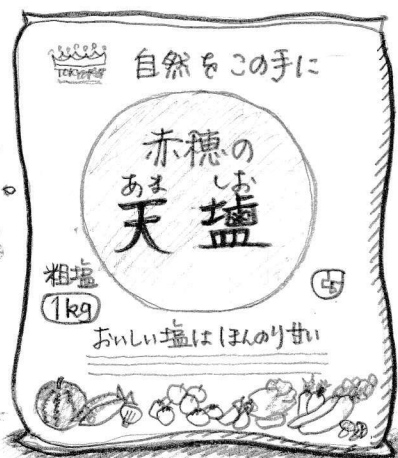 自然をこの手に
赤穂の
あま しお
天塩
粗塩
1kg
おいしい塩はほんのり甘い